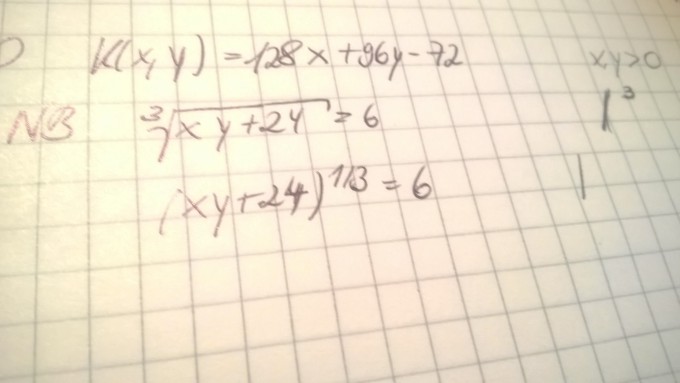 K(x, y) = 128x + 96y - 72 xy>0
NB ∛(xy + 24) = 6 |³
(xy + 24)^1/3 = 6 |